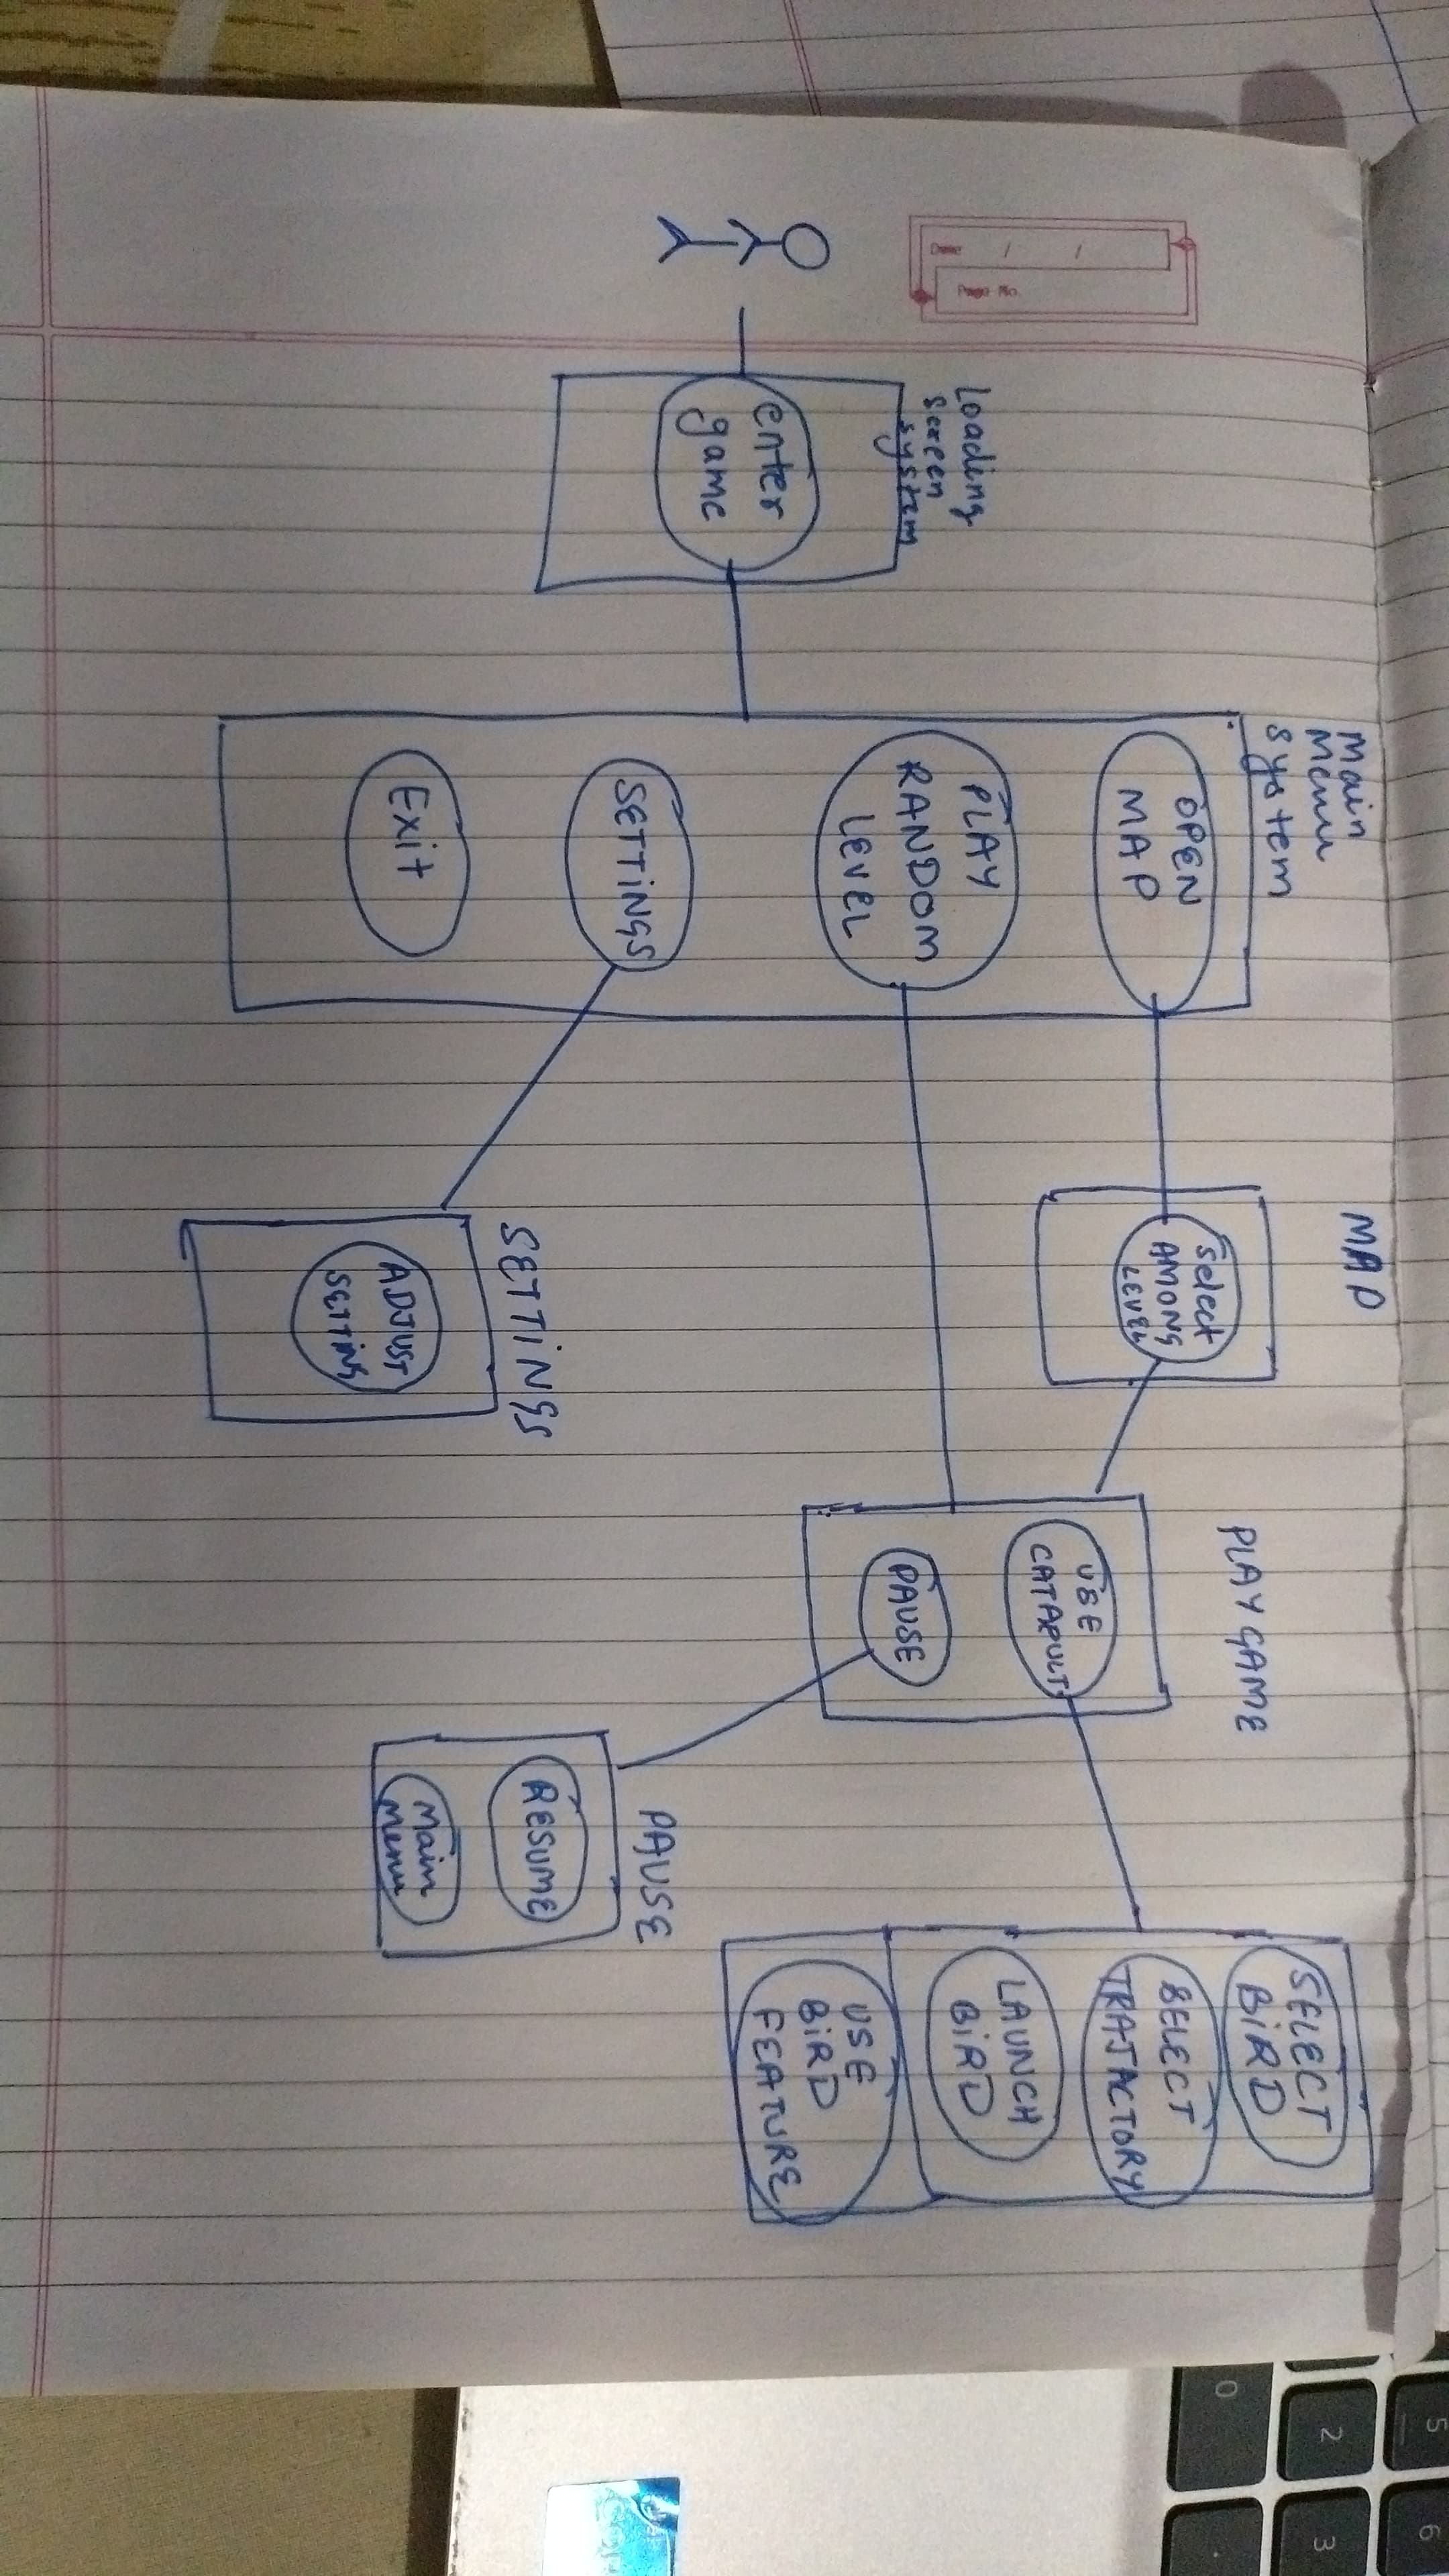 Date / /
Page No.
Loading
screen
system
enter
game
Main
Menu
system
OPEN
MAP
PLAY
RANDOM
LEVEL
SETTiNGS
Exit
MAP
Select
AMONG
LEVEL
SETTINGS
ADJUST
SETTiNG
PLAY GAME
USE
CATAPULT
PAUSE
PAUSE
RESUME
Main
Menu
SELECT
BiRD
SELECT
TRAJACTORY
LAUNCH
BiRD
USE
BiRD
FEATURE
5
6
2
3
0
.